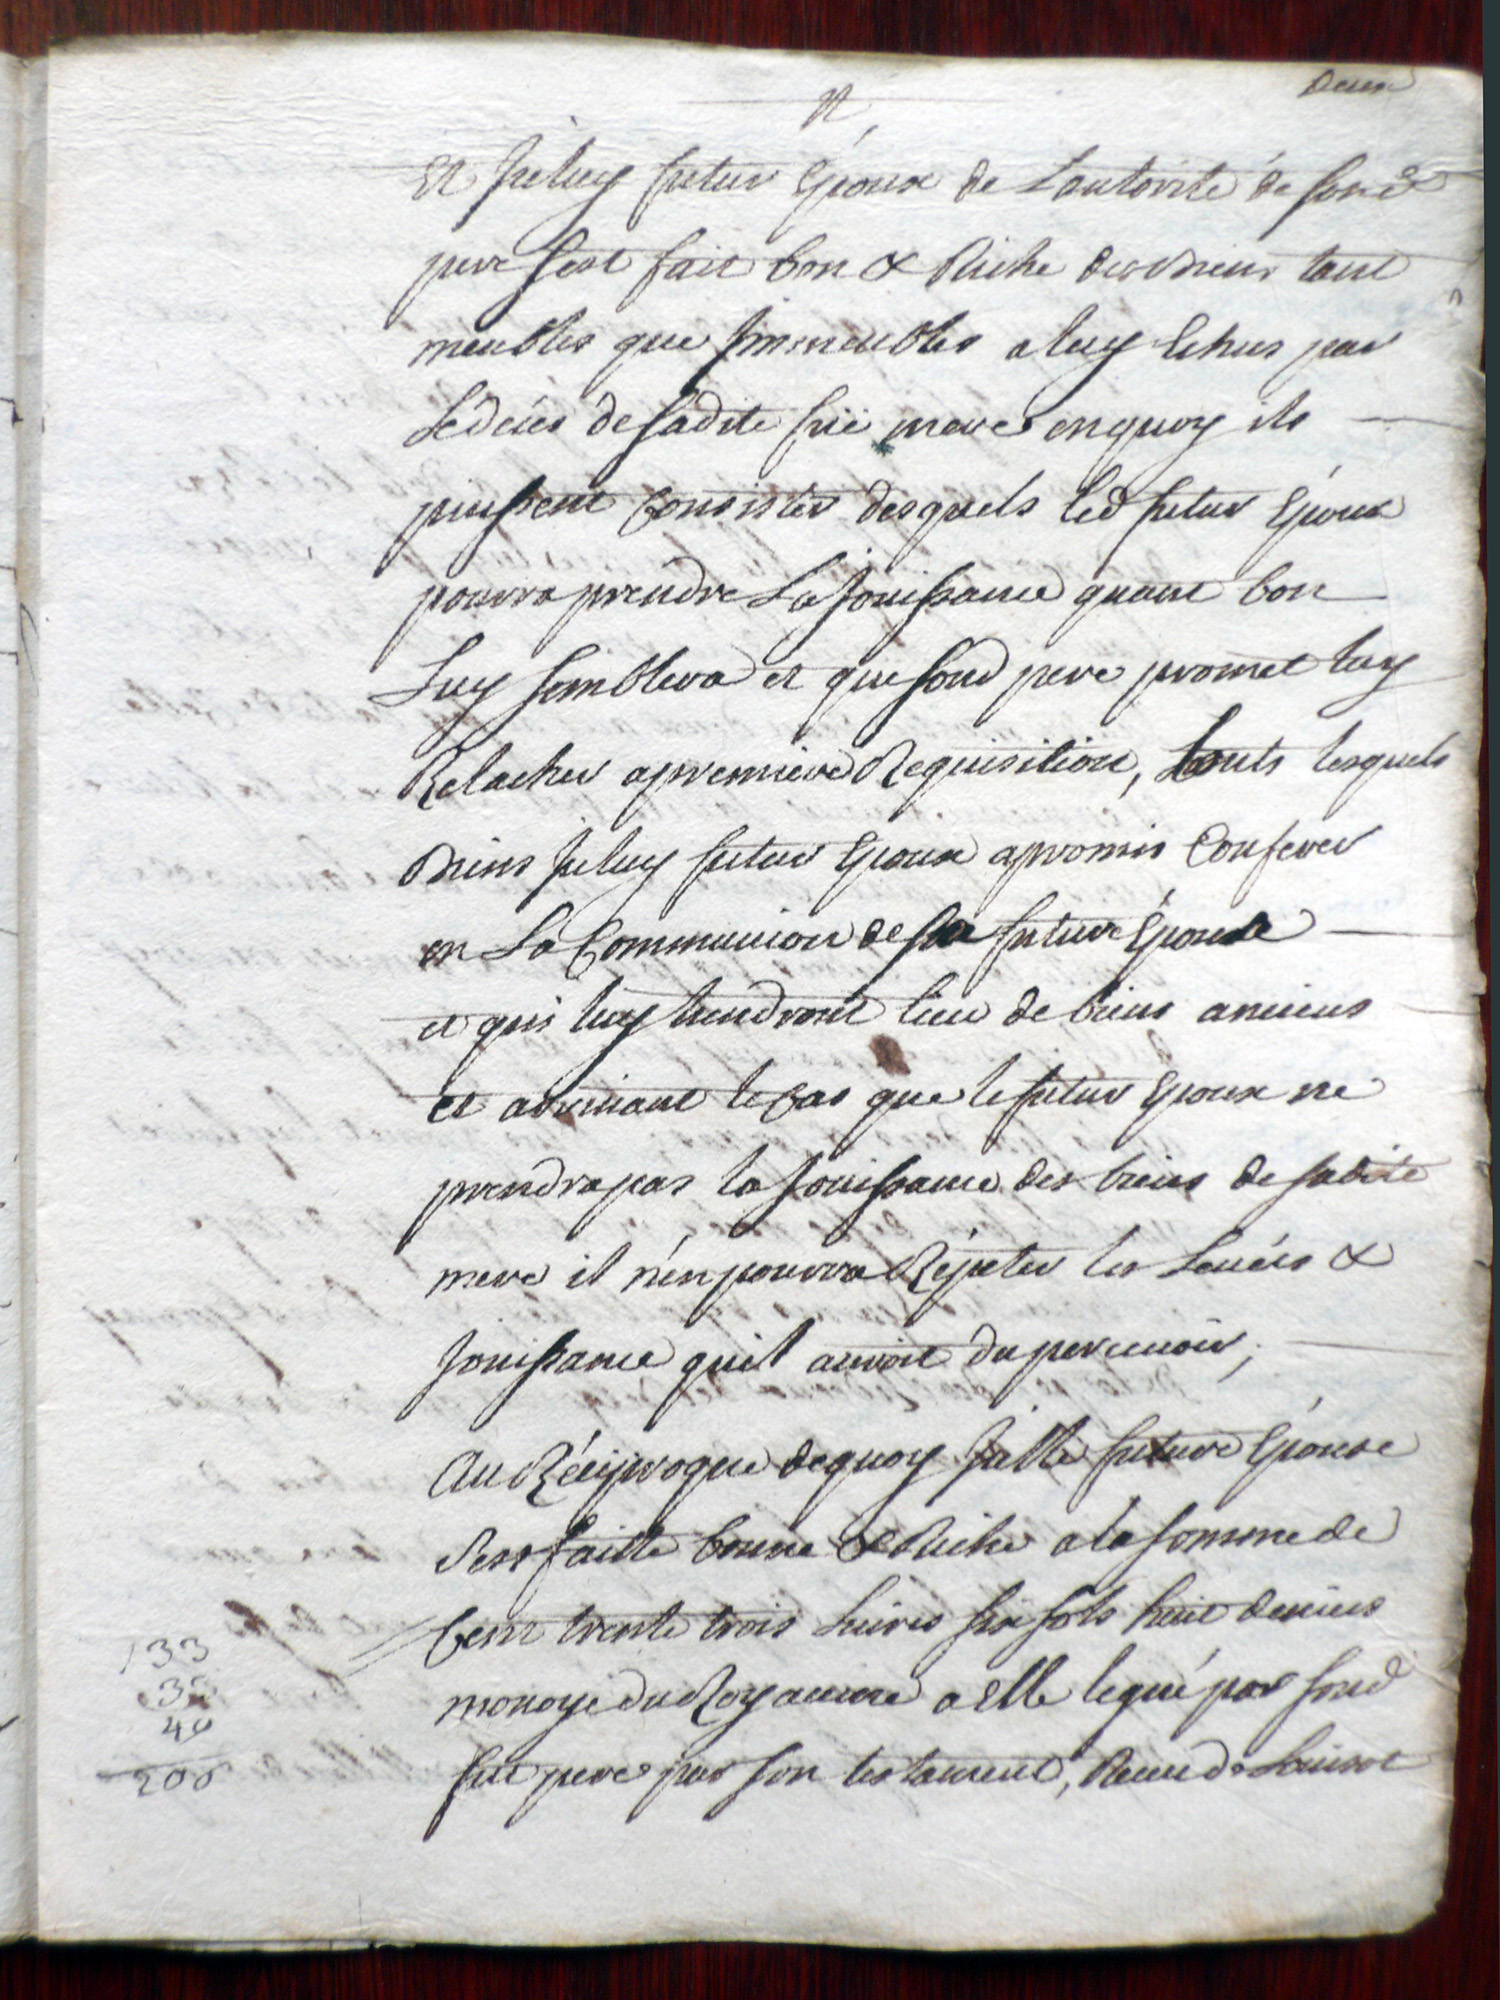 Deux
Et
Et Jceluy futur Epoux de Lautorité de sond
pere sest fait bon & Riche des Biens tant
meubles que Jmmeubles a luy Echus par
Le déces de sadite füe mere enquoy ils
puissent Consister desquels led futur Epoux
pourra prendre La Jouissance quant bon
Luy semblera et que sond pere promet luy
Relacher apremiere Requisition, touts lesquels
Biens Jceluy futur Epoux apromis Conferer
en La Communion de sa future Epouse
et qui luy tiendront lieu de biens anciens
et arrivant le Cas que le futur Epoux ne
prendra pas la Jouissance des biens de sadite
mere il n'en pourra Répeter les Levées &
Jouissance quil auroit du percevoir,
Au Réciproque dequoy Jcelle future Epouse
sest faitte bonne & Riche a la somme de
Cent trente trois Livres six sols huit deniers
monoye du Royaume a Elle legué par sond
fut pere par son testament, Receu de
133
40